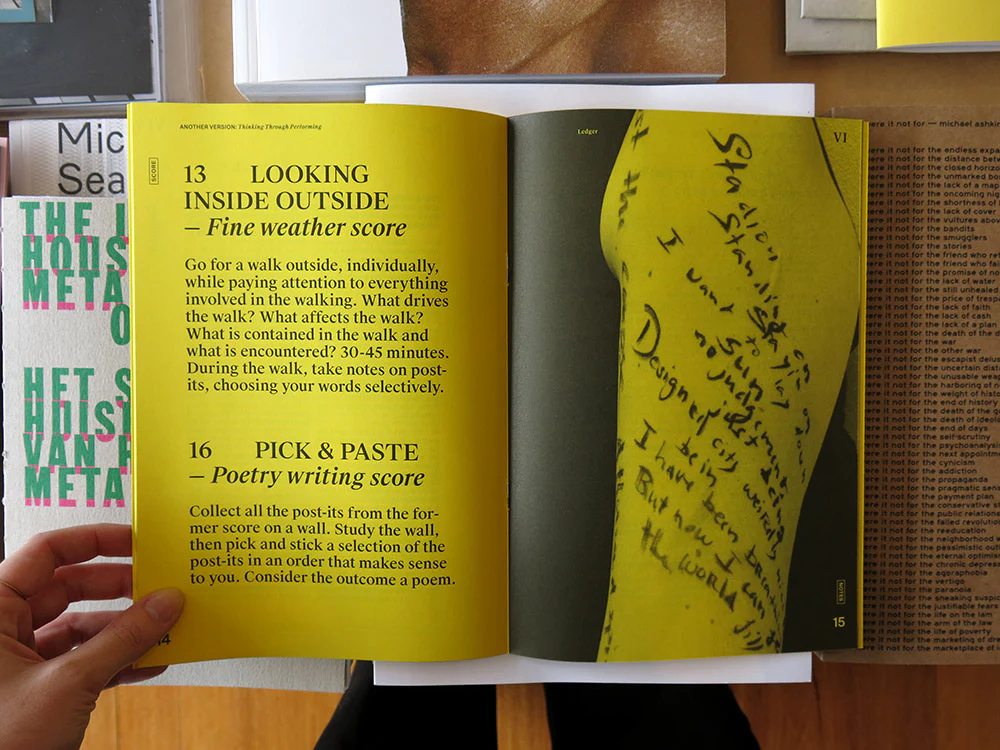 ANOTHER VERSION: Thinking Through Performing
SCORE
13 LOOKING
INSIDE OUTSIDE
– Fine weather score
Go for a walk outside, individually,
while paying attention to everything
involved in the walking. What drives
the walk? What affects the walk?
What is contained in the walk and
what is encountered? 30-45 minutes.
During the walk, take notes on post-
its, choosing your words selectively.
16 PICK & PASTE
– Poetry writing score
Collect all the post-its from the for-
mer score on a wall. Study the wall,
then pick and stick a selection of the
post-its in an order that makes sense
to you. Consider the outcome a poem.
Ledger
VI
Stadion
Standing
I want to
no judgement
Designer city
I have been
But now I can
the WORLD
NOTES
15
Mic
Sea
THE
HOUS
META
O
HET S
HUIS
VAN
META
ere it not for — michael ashkin
ere it not for the endless expa
ere it not for the distance betw
ere it not for the closed horizo
ere it not for the unmarked bo
ere it not for the lack of a map
ere it not for the oncoming nig
ere it not for the shortness of
ere it not for the lack of cover
ere it not for the vultures abov
ere it not for the bandits
ere it not for the smugglers
ere it not for the stories
ere it not for the friend who ret
ere it not for the friend who fai
ere it not for the promise of no
ere it not for the lack of water
ere it not for the still unhealed
ere it not for the price of tresp
ere it not for the lack of faith
ere it not for the lack of cash
ere it not for the lack of a plan
ere it not for the death of the d
ere it not for the war
ere it not for the other war
ere it not for the escapist delus
ere it not for the uncertain dista
ere it not for the unusable weap
ere it not for the harboring of n
ere it not for the weight of hist
ere it not for the end of history
ere it not for the death of the g
ere it not for the death of ideol
ere it not for the end of days
ere it not for the self-scrutiny
ere it not for the psychoanalysis
ere it not for the next appointm
ere it not for the cynicism
ere it not for the addiction
ere it not for the propaganda
ere it not for the pragmatic sens
ere it not for the payment plan
ere it not for the conservative s
ere it not for the public relation
ere it not for the failed revolution
ere it not for the reeducation
ere it not for the neighborhood w
ere it not for the pessimistic out
ere it not for the eternal optimis
ere it not for the chronic depres
ere it not for the agoraphobia
ere it not for the vertigo
ere it not for the paranoia
ere it not for the sneaking suspic
ere it not for the justifiable fears
ere it not for the life on the lam
ere it not for the arm of the law
ere it not for the life of poverty
ere it not for the marketing of dr
ere it not for the marketplace of i